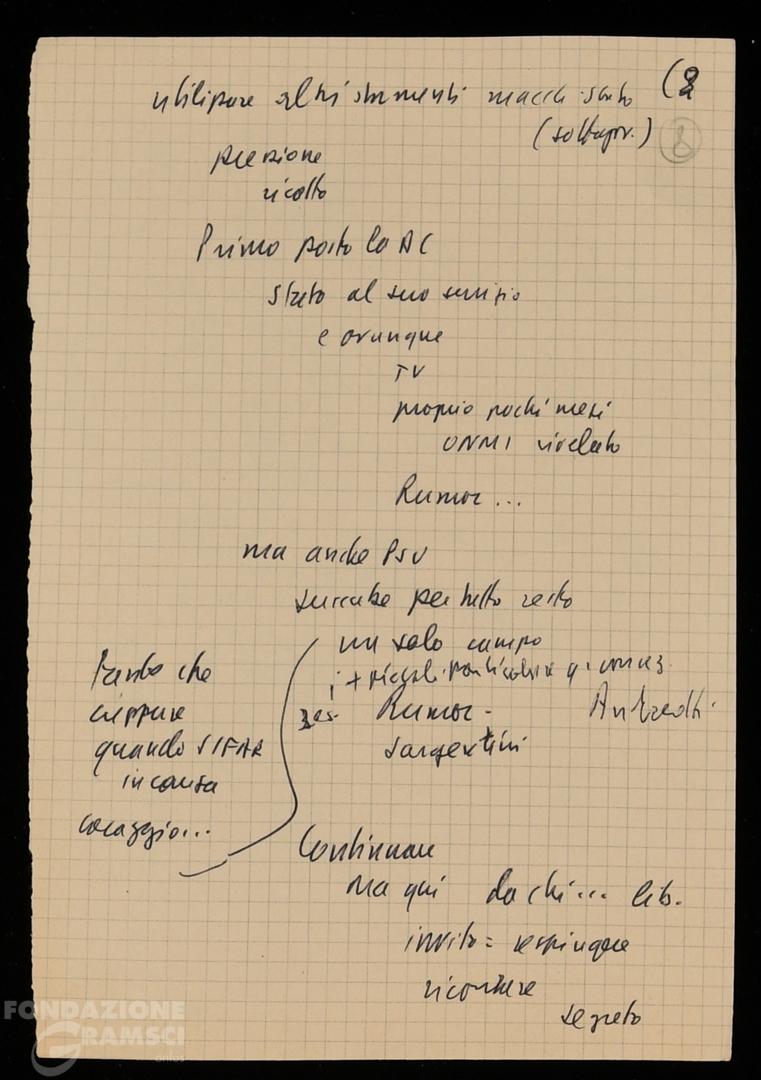 utilizzare altri strumenti macch. stato (8
(sottogov.) 8
pressione
ricatto
Primo posto la DC
stato al suo servizio
e ovunque
TV
proprio pochi mesi
ONMI rivelato
Rumor...
ma anche PSU
succube per tutto resto
un solo campo
i + piccoli
Rumor - Andreotti
Sargentini
Tanto che
neppure
quando SIFAR
in causa
coraggio...
Continuare
ma qui da chi... lib.
invito = respingere
ricordare
segreto
FONDAZIONE
GRAMSCI
onlus